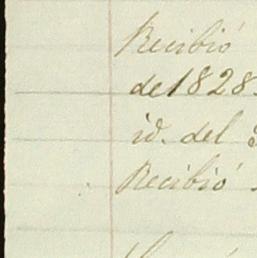 Recibió
de 1828.
id. del
Recibió